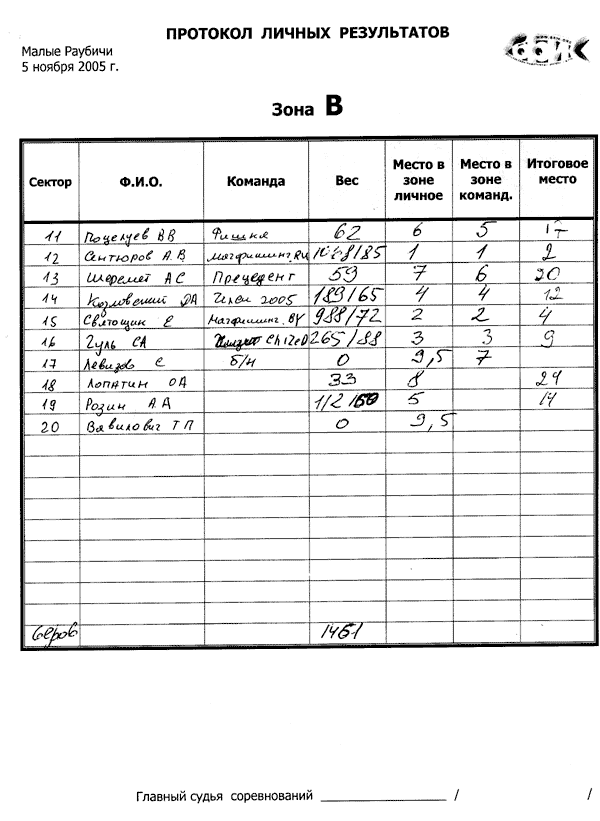 ПРОТОКОЛ ЛИЧНЫХ РЕЗУЛЬТАТОВ
Малые Раубичи
5 ноября 2005 г.
Зона В
Сектор Ф.И.О. Команда Вес Место в зоне личное Место в зоне команд. Итоговое место
11 Поцелуев ВВ Фишка 62 6 5 17
12 Сентюров А.В 1 1 2
13 Шеремет АС Прецедент 59 7 6 20
14 Козловский DA 2005 189/65 4 4 12
15 Святощик Е Матфишинг.BY 988/72 2 2 4
16 Гуль СА 265/88 3 3 9
17 Левизов С б/н 0 9,5 7
18 Лопатин ОА 33 8
19 Розин АА 5 14
20 Вавилович ТП 0 9,5
1461
Главный судья соревнований / /